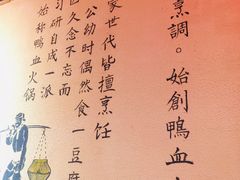 烹調。始創鴨血
家世代皆擅烹飪
公幼時偶然食一豆腐
久念不忘而
習研自成一派
始称鴨血火鍋